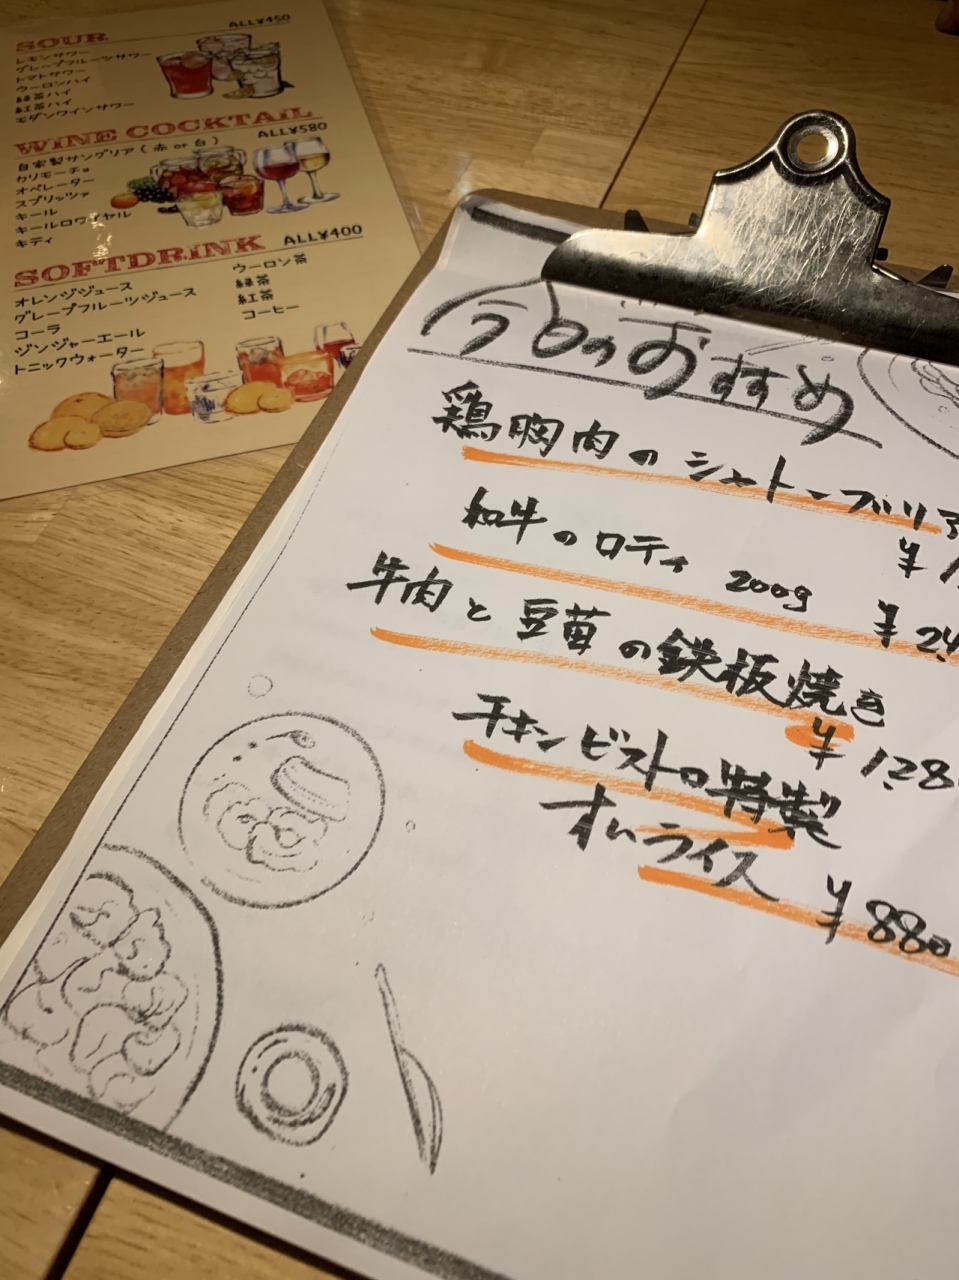 SOUR ALL¥450
レモンサワー
グレープフルーツサワー
トマトサワー
ウーロンハイ
緑茶ハイ
紅茶ハイ
モダンワインサワー
WINE COCKTAIL ALL¥580
自家製サングリア(赤 or 白)
カリモーチョ
オペレーター
スプリッツァ
キール
キールロワイヤル
キティ
SOFTDRINK ALL¥400
オレンジジュース
グレープフルーツジュース
コーラ
ジンジャーエール
トニックウォーター
ウーロン茶
緑茶
紅茶
コーヒー
今日のおすすめ
鶏胸肉のシャトーブリア
¥1
和牛のロティ 200g ¥2,4
牛肉と豆苗の鉄板焼き
¥1,28
チキンビストロ特製
オムライス ¥880